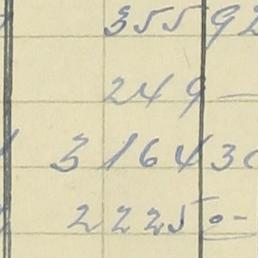 355 92
249 —
3 164 30
2 225 0-